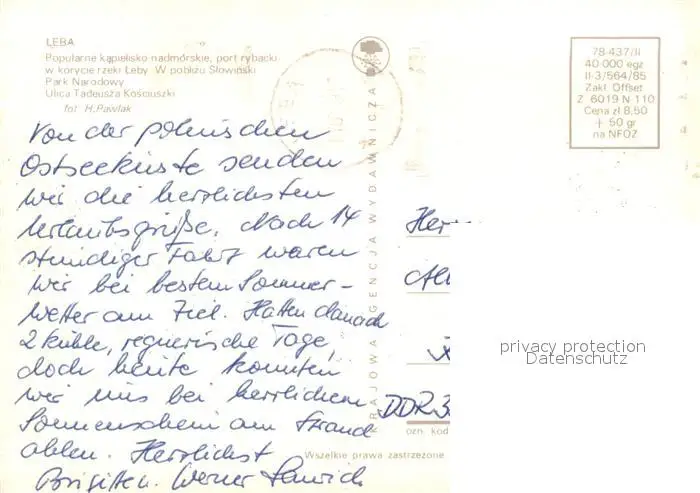 ŁEBA
Popularne kąpielisko nadmorskie, port rybacki
w korycie rzeki Łeby. W pobliżu Słowiński
Park Narodowy
Ulica Tadeusza Kościuszki
fot. H. Pawlak
Von der polnischen
Ostseeküste senden
wir die herzlichsten
Urlaubsgrüße. Nach 14
stündiger Fahrt waren
wir bei bestem Sommer-
wetter am Ziel. Hatten danach
2 kühle, regnerische Tage,
doch heute konnten
wir uns bei herrlichem
Sonnenschein am Strand
aalen. Herzlichst
Werner
KRAJOWA AGENCJA WYDAWNICZA
78-437/II
40 000 egz
II-3/564/85
Zakł. Offset
Z. 6019 N-110
Cena zł 8,50
+ 50 gr
na NFOZ
Her
DDR 3
ozn. kod
Wszelkie prawa zastrzeżone
privacy protection
Datenschutz